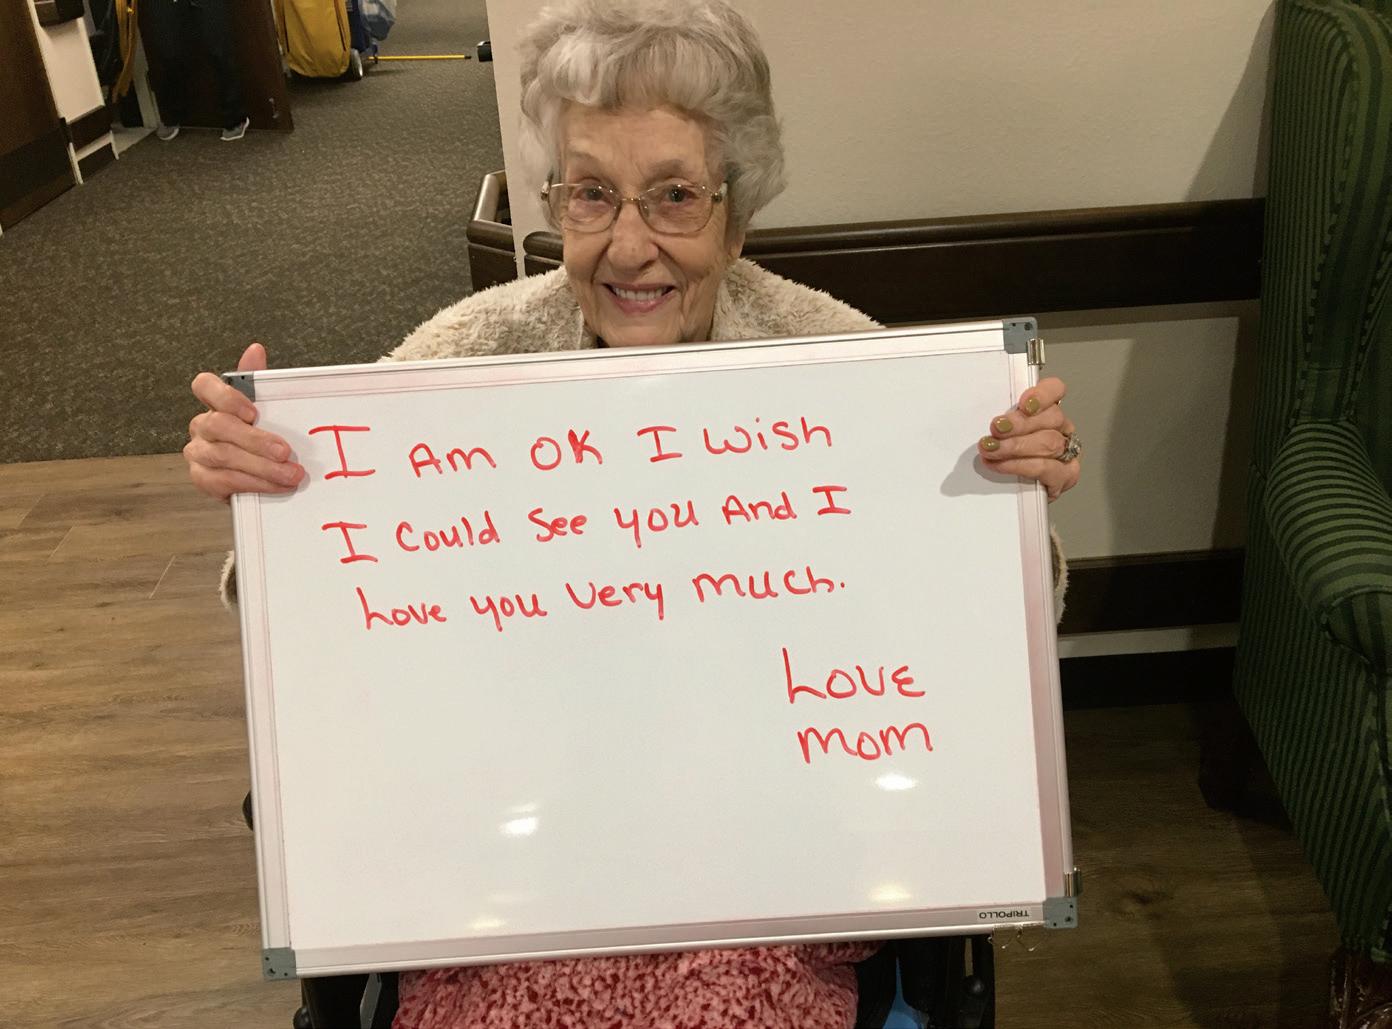 I Am OK I Wish
I Could See you And I
Love you Very Much.
Love
Mom
TRIPOLLO